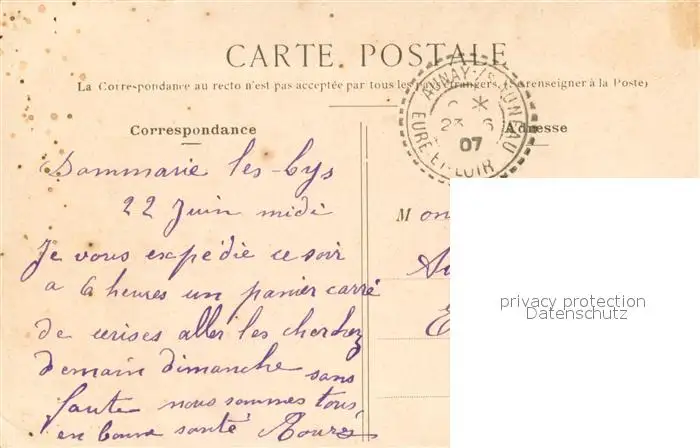 CARTE POSTALE
La Correspondance au recto n'est pas acceptée par tous les pays étrangers. (Se renseigner à la Poste)
AUNAY-S/S-AUNEAU
23 6
07
EURE-ET-LOIR
Correspondance
Adresse
Dammarie les-lys
22 Juin midi
Je vous expédie ce soir
a 6 heures un panier carré
de cerises aller les cherchez
demain dimanche sans
faute nous sommes tous
en bonne santé
Mon
Au
E
privacy protection
Datenschutz